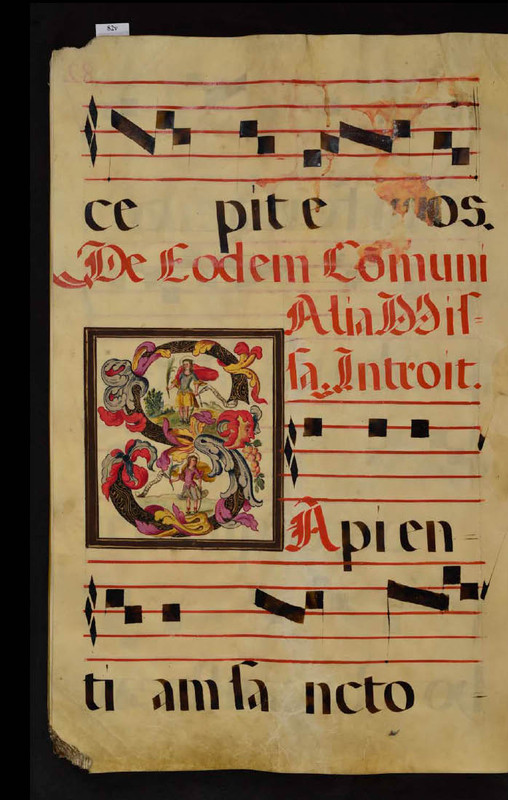 82v
ce pit e uos.
De Eodem Comuni
Alia Mis=
sa. Introit.
SApien=
ti am sa ncto